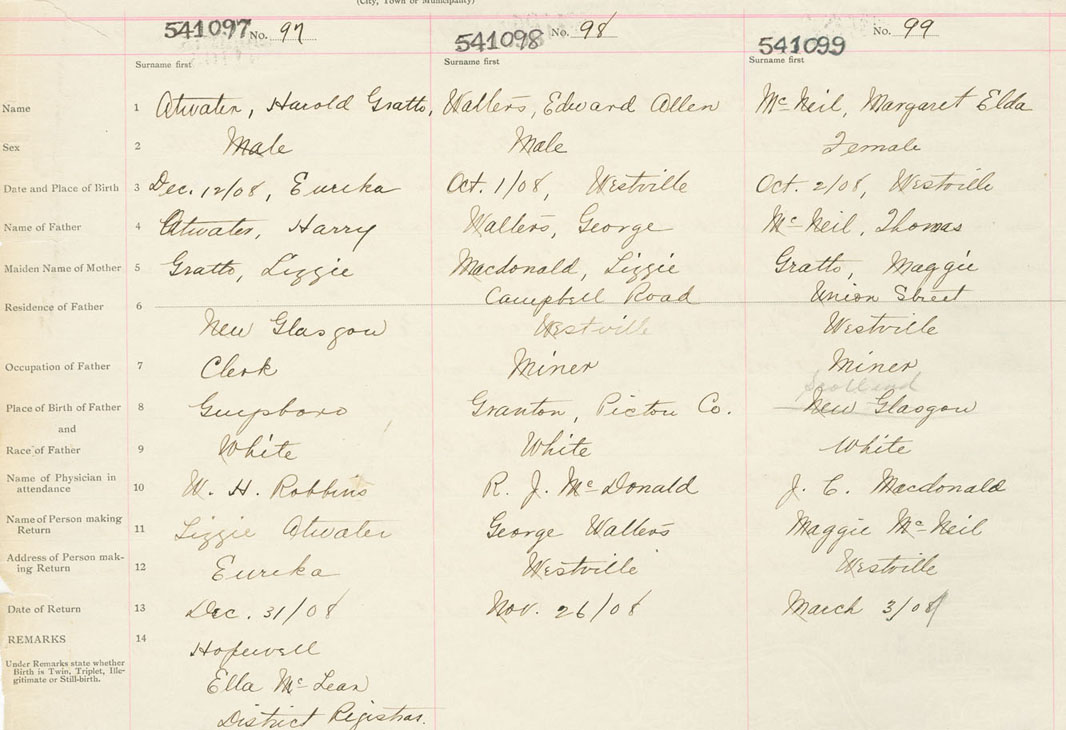 (City, Town or Municipality)
541097 No. 97
541098 No. 98
541099 No. 99
Surname first
Surname first
Surname first
Name 1 Atwater, Harold Gratto, Walters, Edward Allen McNeil, Margaret Elda
Sex 2 Male Male Female
Date and Place of Birth 3 Dec. 12/08, Eureka Oct. 1/08, Westville Oct. 2/08, Westville
Name of Father 4 Atwater, Harry Walters, George McNeil, Thomas
Maiden Name of Mother 5 Gratto, Lizzie Macdonald, Lizzie Gratto, Maggie
Campbell Road Union Street
Residence of Father 6
New Glasgow Westville Westville
Occupation of Father 7 Clerk Miner Miner
Scotland
Place of Birth of Father 8 Guysboro Granton, Pictou Co. New Glasgow
and
Race of Father 9 White White White
Name of Physician in
attendance 10 W. H. Robbins R. J. McDonald J. C. Macdonald
Name of Person making
Return 11 Lizzie Atwater George Walters Maggie McNeil
Address of Person mak-
ing Return 12 Eureka Westville Westville
Date of Return 13 Dec. 31/08 Nov. 26/08 March 3/08
REMARKS 14 Hopewell
Under Remarks state whether
Birth is Twin, Triplet, Ille-
gitimate or Still-birth.
Ella McLean
District Registrar.